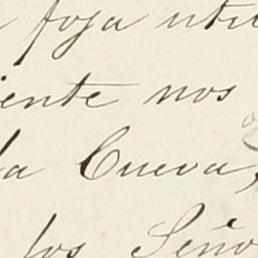 foja uti
iente nos
la Cueva,
los Seño